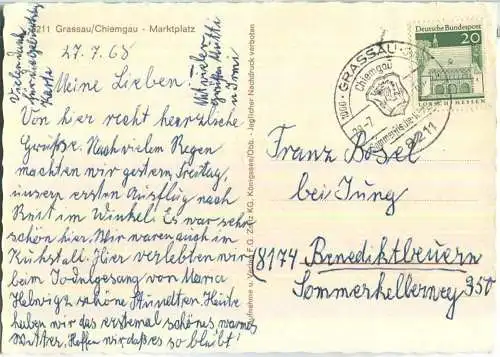 8211 Grassau/Chiemgau - Marktplatz
27.7.68
Meine Lieben!
Von hier recht herzliche
Grüße. Nach vielem Regen
machten wir gestern, Freitag,
unsern ersten Ausflug nach
Reit im Winkel. Es war sehr
schön hier. Wir waren auch in
Kuhstall. Hier verlebten wir
beim Jodelgesang von Maria
Helwig 2 schöne Stunden. Heute
haben wir das erstemal schönes warmes
Wetter. Hoffen wir daß es so bleibt!
Vielen Dank
für
Karte
Mit vielen
Grüßen Mutti
u. Irmi
Aufnahme u. Verlag F. G. Zeitz KG, Königssee/Obb. - Jeglicher Nachdruck verboten
GRASSAU
Chiemgau
8211
Deutsche Bundespost
20
LORSCH/HESSEN
Franz Bosel
bei Jung
(8174 Benediktbeuern
Sommerkellerweg 350